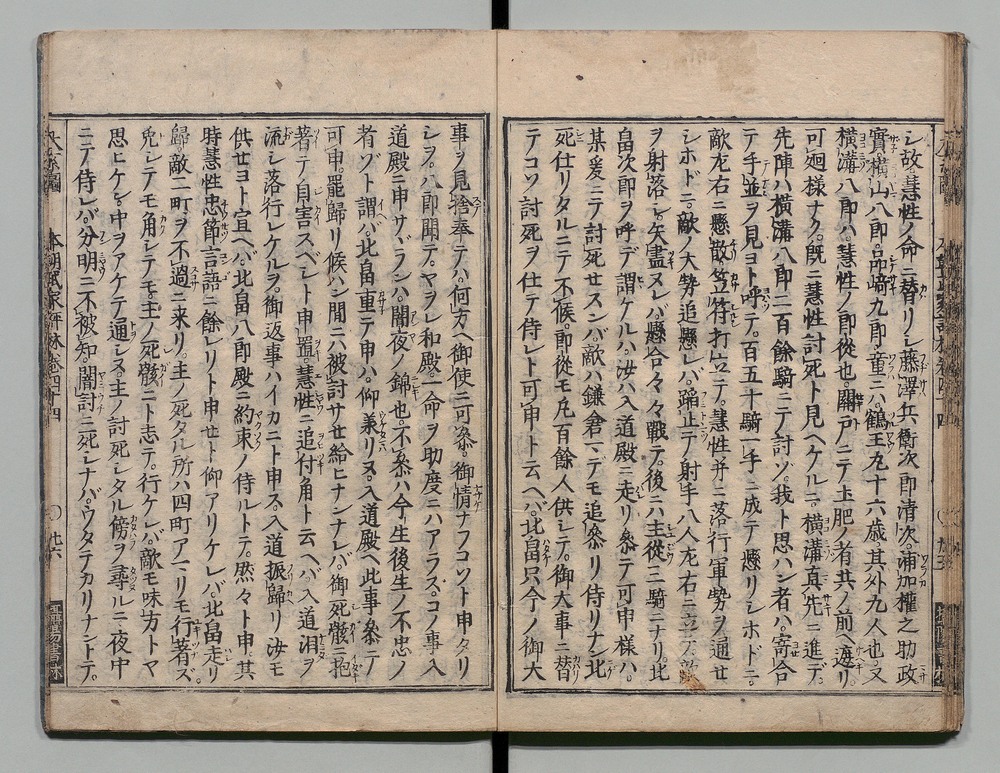 シ故。慧性ノ命ニ替リシ藤澤兵衛次郎清次浦加權之助政
實横山八郎品﨑九郎童ニハ鶴王丸十六歳其外九人也又
横溝八郎ハ慧性ノ郎從也。關戸ニテ土肥ノ者共ノ前ヘ遮リ
可廻樣ナク。既ニ慧性討死ト見ヘケルニ。横溝真先ニ進デ
先陣ハ横溝八郎二百餘騎ニテ討ゾ。我ト思ハン者ハ。寄合
テ手並ヲ見ヨト呼テ。百五十騎一手ニ成テ懸リシホドニ。
敵左右ニ懸散笠符打
シホドニ。敵ノ大勢追懸レバ。蹈止テ射手八人左右ニ立テ敵
ヲ射落シ。矢盡ヌレバ懸合々々戰テ。後ニハ主從三騎ニナリ。此
畠次郎ヲ呼デ謂ケルハ。汝ハ入道殿ニ走リ參テ可申様ハ。
某爰ニテ討死セスンバ。敵ハ鎌倉マデモ追參リ侍リナン此
死仕リタルニテ不候。郎從モ凡百餘人供シテ。御大事ニ替
テコソ討死ヲ仕テ侍レト可申ト云ヘバ。北畠只今ノ御大
事ヲ見捨奉テハ。何方ヘ御使ニ可參。御情ナフコソト申タリ
シヲ。八郎聞テ。ヤヲレ和殿一命ヲ助度ニハアラズ。コノ事入
道殿ニ申サヾランハ。闇夜ノ錦也。不參ハ今生後生ノ不忠ノ
者ゾト謂ヘバ。北畠重テ申ハ。仰兼リヌ。入道殿ヘ此事參テ
可申。罷歸リ候ハン間ニ六被討サセ給ヒナンナレバ。御死骸ニ抱
著テ自害スベシト申置。慧性ニ追付角ト云ヘバ。入道泪ヲ
流シ落行レケルヲ。御返事ハイカニト申ス。入道振歸リ汝モ
供セヨト宣ヘバ。北畠八郎殿ニ約束ノ侍ルトテ。然々ト申其
時慧性忠節言語ニ餘レリト申セト仰アリケレバ。北畠走リ
歸。敵二町ヲ不過ニ来リ。主ノ死タル所ハ四町アマリモ行著ズ。
兎シテモ角シテモ。主ノ死骸ニト志テ。行ケレバ。敵モ味方トヤ
思ヒケン。中ヲアケテ通シヌ。主ノ討死シタル傍ヲ尋ルニ。夜中
ニテ侍レバ。分明ニ不被知闇討ニ死シナバ。ウタテカリナントテ。